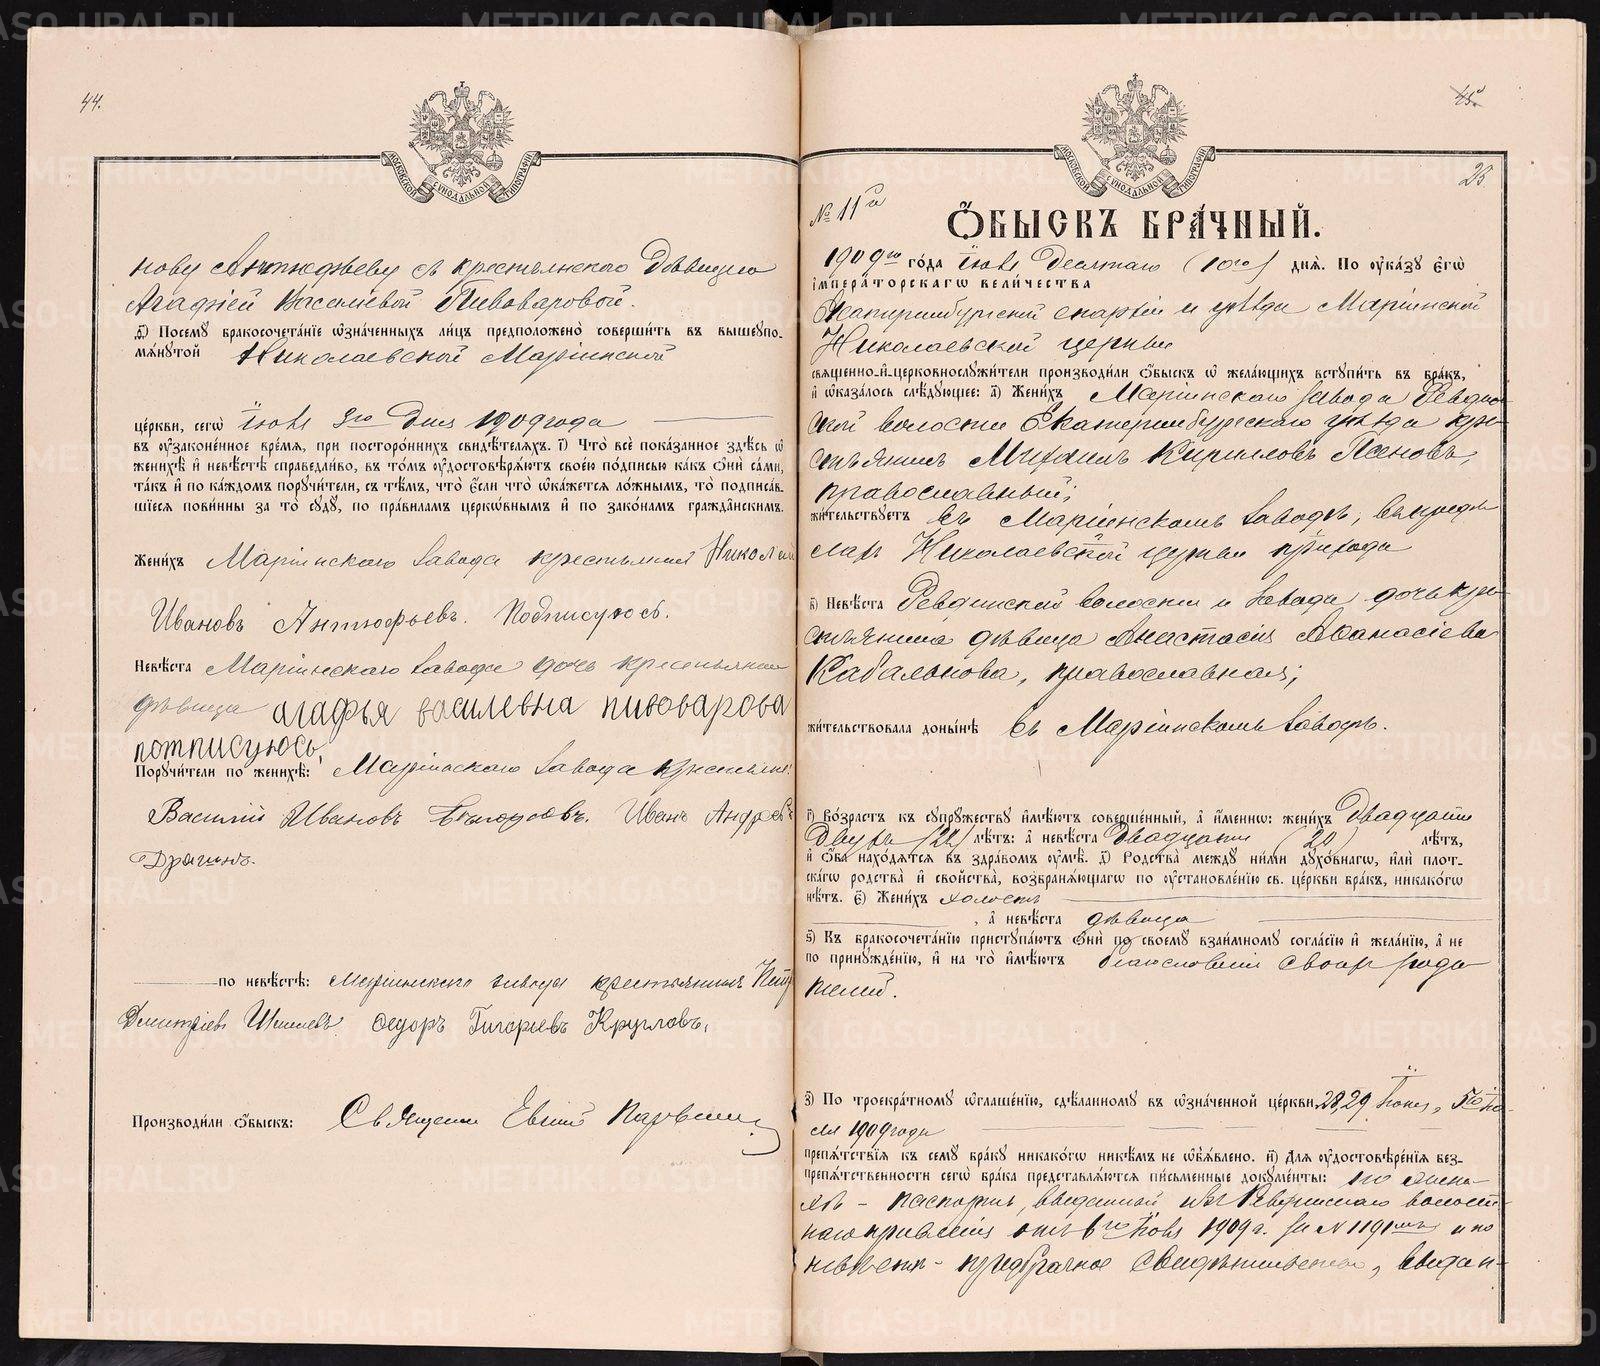 44.
МОСКОВСКОЙ СѴНОДАЛЬНОЙ ТИПОГРАФІИ
нову Антифьеву съ крестьянскою дѣвицею
Агафіей Васильевой Пивоваровой.
Посему бракосочетаніе ѡзначенныхъ лицъ предположено совершить въ вышеупо-
мянутой Николаевской Маріинской
церкви, сего іюня 3го дня 1909 года
въ узаконенное время, при постороннихъ свидѣтеляхъ. і) Что все показанное здѣсь ѡ
женихѣ и невѣстѣ справедливо, въ томъ удостовѣряютъ своею подписью какъ они сами,
такъ и по каждомъ поручители, съ тѣмъ, что если что ѡкажется ложнымъ, то подписав-
шіеся повинны за то суду, по правиламъ церковнымъ и по законамъ гражданскимъ.
Женихъ Маріинскаго завода крестьянинъ Николай
Ивановъ Антюфьевъ. Подписуюсь.
Невѣста Маріинскаго завода дочь крестьянина
дѣвица агафья василевна пивоварова
потписуюсь,
Поручители по женихѣ: Маріинскаго завода крестьяне:
Василий Ивановъ Иванъ Андреевъ
Драгинъ.
по невѣстѣ: Маріинскаго завода крестьянинъ Петръ
Дмитріевъ Федоръ Григорьевъ Кругловъ,
Производили ѡбыскъ: Священникъ Евгеній
45
23
МОСКОВСКОЙ СѴНОДАЛЬНОЙ ТИПОГРАФІИ
№ 11й
ѠБЫСКЪ БРАЧНЫЙ.
1909го года іюня десятаго (10го) дня. По указу Егѡ
Императорскагѡ Величества
Екатеринбургской епархіи и уѣзда Маріинской
Николаевской церкви
священно-и-церковнослужители производили ѡбыскъ ѡ желающихъ вступить въ бракъ,
и ѡказалось слѣдующее: а) Женихъ Маріинскаго завода Ревдин-
ской волости Екатеринбургскаго уѣзда кре-
стьянинъ Михаилъ Кирилловъ Ясновъ,
православный;
жительствуетъ въ Маріинскомъ заводѣ, въ предѣ-
лахъ Николаевской церкви прихода
в) Невѣста Ревдинской волости и завода дочь кре-
стьянина дѣвица Анастасія Аѳанасіева
Кабалькова, православная;
жительствовала донынѣ въ Маріинскомъ заводѣ.
г) Возрастъ къ супружеству имѣютъ совершенный, а именнѡ: женихъ двадцати
двухъ (22) лѣтъ: а невѣста двадцати (20) лѣтъ,
и ѡба находятся въ здравомъ умѣ. д) Родства между ними духовнагѡ, или плот-
скагѡ родства и свойства, возбраняющагѡ по установленію св. церкви бракъ, никакогѡ
нѣтъ. е) Женихъ холостъ
, а невѣста дѣвица
ѕ) Къ бракосочетанію приступаютъ ѡни по своему взаимному согласію и желанію, а не
по принужденію, и на то имѣютъ благословеніе своихъ роди
телей.
з) По троекратному ѡглашенію, сдѣланному въ ѡзначенной церкви 28, 29 іюня, 5го ію-
ля 1909 года
препятствія къ сему браку никакогѡ никѣмъ не ѡбъявлено. и) Для удостовѣренія без-
препятственности сегѡ брака представляются письменные документы: по жени-
хѣ - паспортъ, выданный изъ Ревдинскаго волост-
наго правленія отъ 6го іюня 1909 г. за № 1191 и по
невѣстѣ - предбрачное свидѣтельство, выдан-
METRIKI.GASO-URAL.RU